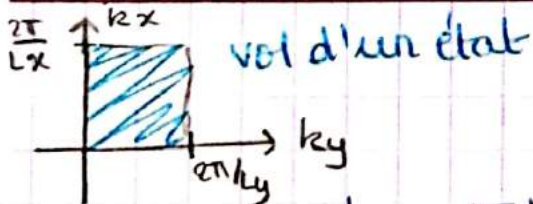 2π/Lx
kx
vol d'un état
ky
2π/Ly